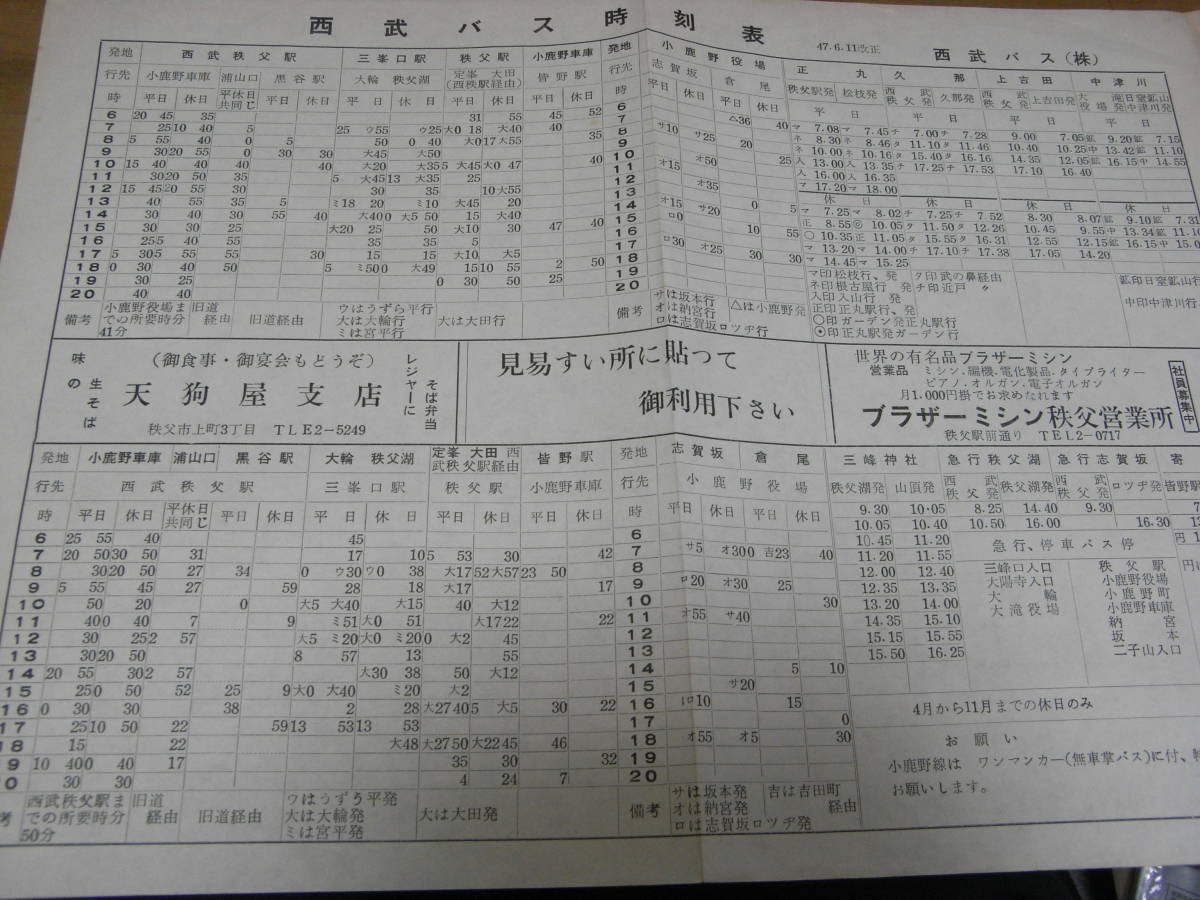 西武バス時刻表
47.6.11改正
西武バス(株)
発地 西武秩父駅 三峯口駅 秩父駅 小鹿野車庫
行先 小鹿野車庫 浦山口 黒谷駅 大輪 秩父湖 定峯 大田 (西秩駅経由) 皆野駅
時 平日 休日 平休日共同じ 平日 休日 平日 休日 平日 休日 平日 休日
6 20 45 35 31 55 45 52
7 25 10 40 5 25 ウ55 ウ25 大0 18 大40 40
8 5 55 40 0 5 50 0 40 大0 17 大55 35
9 30 20 55 0 30 30 大45 大50
10 15 40 40 40 40 大20 大35 5 大45 大0 47 40
11 30 20 50 35 5 大45 13 大35 25
12 15 45 20 55 30 30 35 10 大55
13 40 55 35 5 ミ18 20 ミ10 大45 20
14 30 40 30 55 40 大40 0 大5 50 15 大40
15 30 30 25 大20 25 50 大10 30 47 40
16 25 5 40 55 35 35 5
17 5 30 5 55 55 30 15 15 大10 大5
18 0 30 40 50 5 ミ50 0 大49 15 10 55 2 50
19 30 25 0 30 50 25
20 40 40
備考 小鹿野役場までの所要時分41分 旧道経由 旧道経由
ウはうずら平行
大は大輪行
ミは宮平行
大は大田行
発地 小鹿野役場
行先 志賀坂 倉尾
時 平日 休日 平日 休日
6
7 △36 40
8 サ10
9 サ25 20
10 オ50 25
11 オ15
12 オ35
13
14 オ15 0 5
15 ロ0 サ20
16 10 55
17 ロ30 オ25
18 30 30
19
20
備考
サは坂本行 △は小鹿野発
オは納宮行
ロは志賀坂ロツヂ行
正丸 久那 上吉田 中津川
秩父駅発 松枝発 西武秩父発 久那発 西武秩父発 上吉田発 大滝役場発 日窒鉱山中津川発
平日 平日 平日 平日
マ 7.08 マ 7.45 チ 7.00 チ 7.28 9.00 7.05 鉱 9.20 鉱 7.15
ネ 8.30 ネ 8.46 タ 11.10 タ 11.46 10.40 10.25 中 13.42 鉱 11.10
ネ 10.00 ネ 10.16 タ 15.40 タ 16.16 14.35 12.05 鉱 16.15 中 14.55
入 13.00 入 13.35 チ 17.25 チ 17.53 17.10 16.40
入 16.00 入 16.35
マ 17.20 マ 18.00
休日 休日 休日 休日
マ 7.25 マ 8.02 チ 7.25 チ 7.52 8.30 8.07 鉱 9.10 鉱 7.31
正 8.55 ◎ 10.05 タ 11.50 タ 12.26 10.45 9.55 中 13.34 鉱 11.10
〇 10.35 正 11.05 タ 15.55 タ 16.31 12.55 12.15 鉱 16.15 中
マ 13.20 マ 14.00 チ 17.10 チ 17.38 17.05 14.20
マ 14.45 マ 15.25
マ印松枝行、発 タ印武の鼻経由
ネ印根古屋行 発 チ印近戸 〃
入印入山行 発
正印正丸駅行、発
〇印ガーデン発正丸駅行
◎印正丸駅発ガーデン行
鉱印日窒鉱山行
中印中津川行
味の生そば
(御食事・御宴会もどうぞ)
天狗屋支店
レジャーに そば弁当
秩父市上町3丁目 TLE2-5249
見易すい所に貼つて
御利用下さい
世界の有名品ブラザーミシン
営業品 ミシン.編機.電化製品.タイプライター
ピアノ.オルガン.電子オルガン
月1,000円掛でお求めなれます
ブラザーミシン秩父営業所
秩父駅前通り TEL2-0717
社員募集中
発地 小鹿野車庫 浦山口 黒谷駅 大輪 秩父湖 定峯 大田 西武秩父駅経由 皆野駅
行先 西武秩父駅 三峯口駅 秩父駅 小鹿野車庫
時 平日 休日 平休日共同じ 平日 休日 平日 休日 平日 休日 平日 休日
6 25 55 40 45
7 20 50 30 50 31 17 10 5 53 30 42
8 30 20 50 27 34 0 ウ30 ウ0 38 大17 52 大57 23 50
9 5 55 45 27 59 28 18 大17 17
10 50 20 0 大5 大40 大15 40 大12
11 40 0 40 7 9 ミ51 大0 51 大17 22 22
12 30 25 2 57 大5 ミ20 大0 ミ20 0 大2 45
13 30 20 50 8 57 13 55
14 20 55 30 2 57 大30 38 50 大12
15 25 0 50 52 25 9 大0 大40 ミ20 大2
16 0 30 30 38 2 28 大27 40 5 大5 30 22
17 25 10 50 22 59 13 53 13 53
18 15 22 大48 大27 50 大22 45 46
9 10 40 0 40 17 35 30 32
0 30 30 4 24 7
考 西武秩父駅までの所要時分50分 旧道経由 旧道経由
ウはうずう平発
大は大輪発
ミは宮平発
大は大田発
発地 志賀坂 倉尾
行先 小鹿野役場
時 平日 休日 平日 休日
6
7 サ5 オ30 0 吉23 40
8
9 ロ20 オ30 25
10 30
11 オ55 サ40
12
13
14 5 10
15 サ20
16 ロ10 15
17 0
18 オ55 オ5 30
19
20
備考
サは坂本発 吉は吉田町経由
オは納宮発
ロは志賀坂ロツヂ発
三峰神社 急行秩父湖 急行志賀坂 寄
秩父湖発 山頂発 西武秩父発 秩父湖発 西武秩父発 ロツヂ発 皆野駅
9.30 10.05 8.25 14.40 9.30 7
10.05 10.40 10.50 16.00 16.30
10.45 11.20
11.20 11.55
12.00 12.40
12.35 13.35
13.20 14.00
14.35 15.10
15.15 15.55
15.50 16.25
急行、停車バス停
三峰口入口 秩父駅
大陽寺入口 小鹿野役場
大輪 小鹿野町
大滝役場 小鹿野車庫
納宮
坂本
二子山入口
4月から11月までの休日のみ
お願い
小鹿野線は ワンマンカー(無車掌バス)に付、
お願いします。